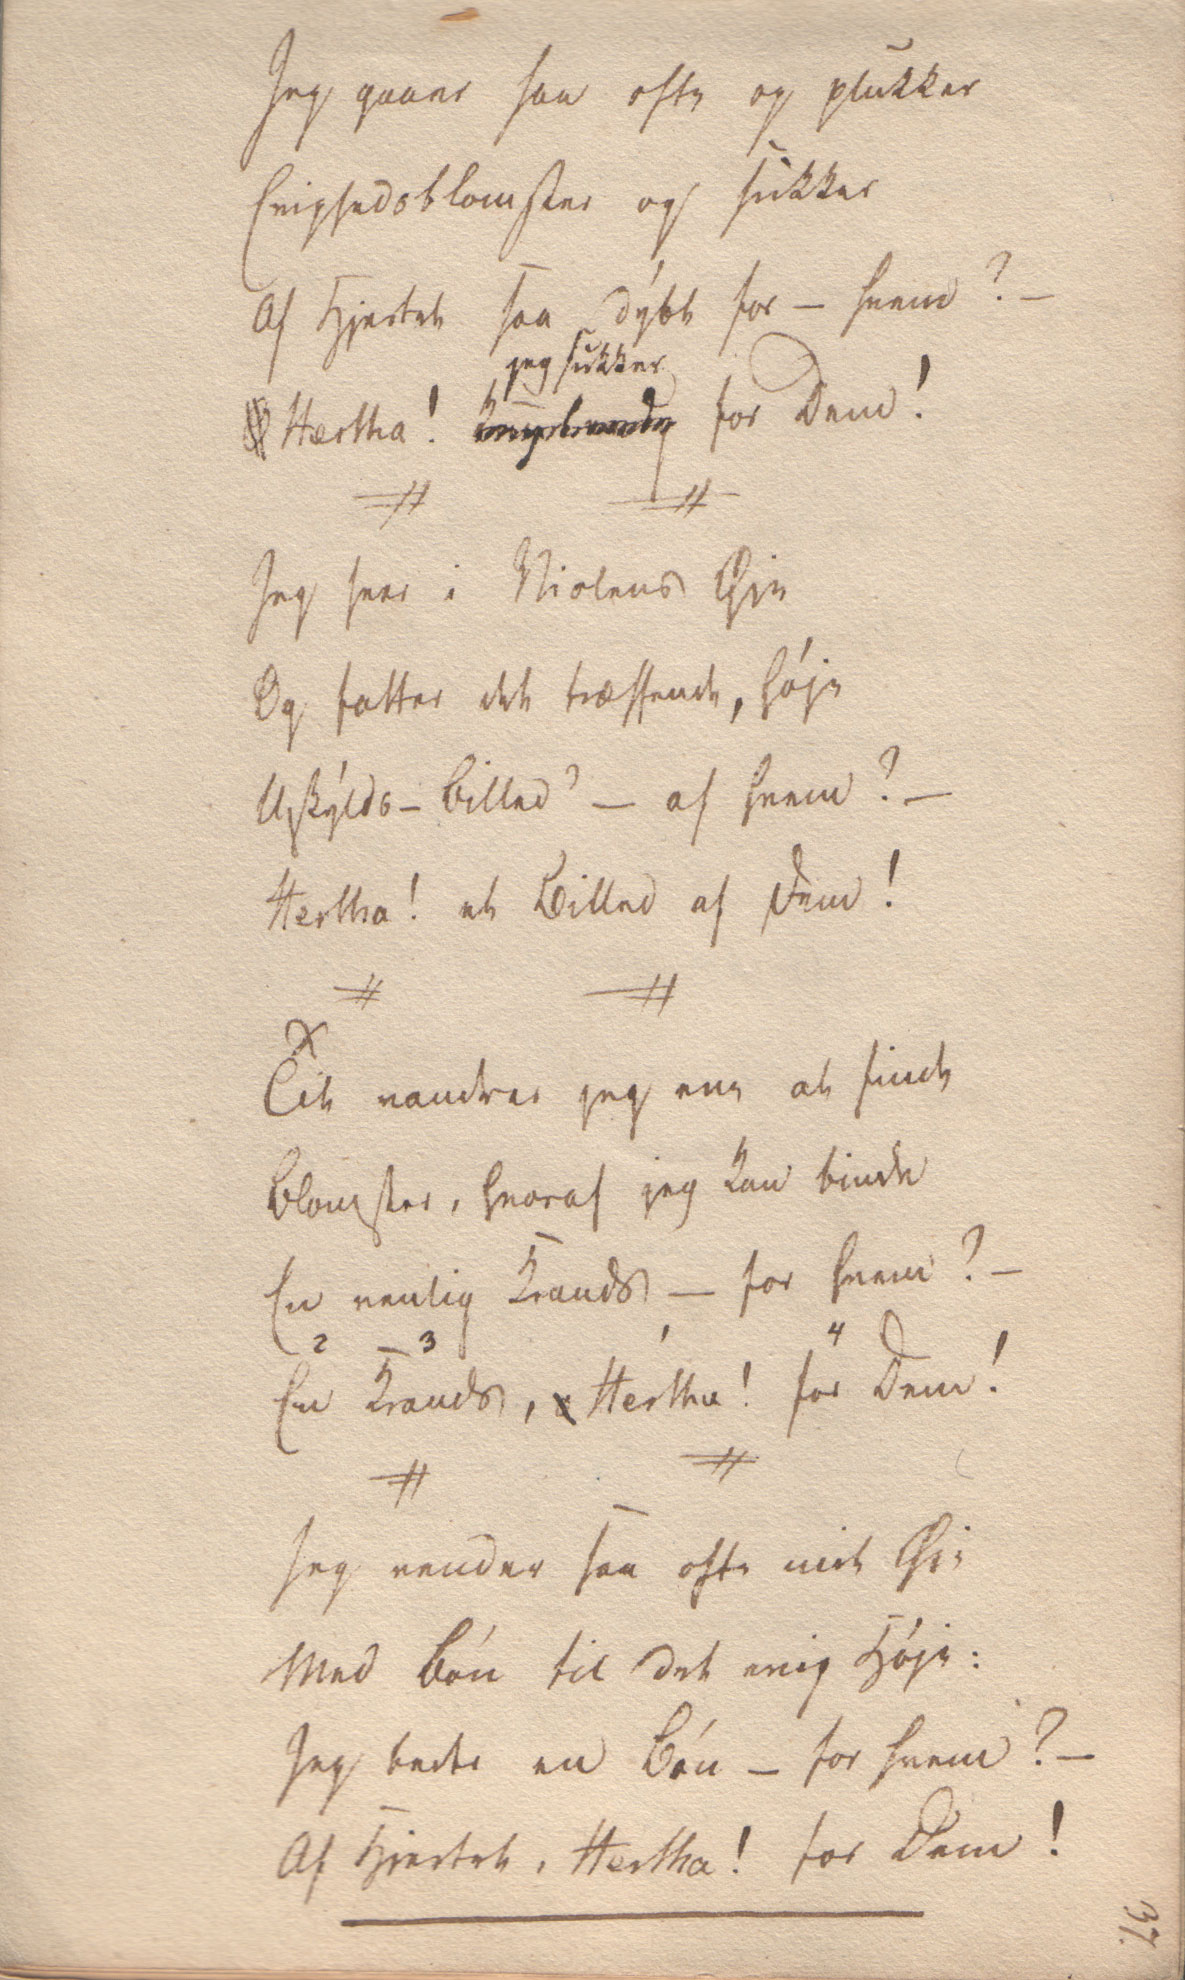 Jeg gaaer saa ofte og plukker
Evighedsblomster og sukker
Af Hjertet saa dybt for – hvem? –
jeg sukker
Hertha! for Dem!
Jeg seer i Violens Øie
Og fatter det træffende, høje
Uskylds – Billed' – af hvem? –
Hertha! et Billed af Dem!
X
Tit vandrer jeg ene at finde
Blomster, hvoraf jeg kan binde
En venlig Krands – for hvem? –
2 3 4
En Krands, Hertha! for Dem!
Jeg vender saa ofte mit Øie
Med Bön til det evig Høje:
Jeg beder en Bön – for hvem? –
Af Hjertet, Hertha! for Dem!
37.